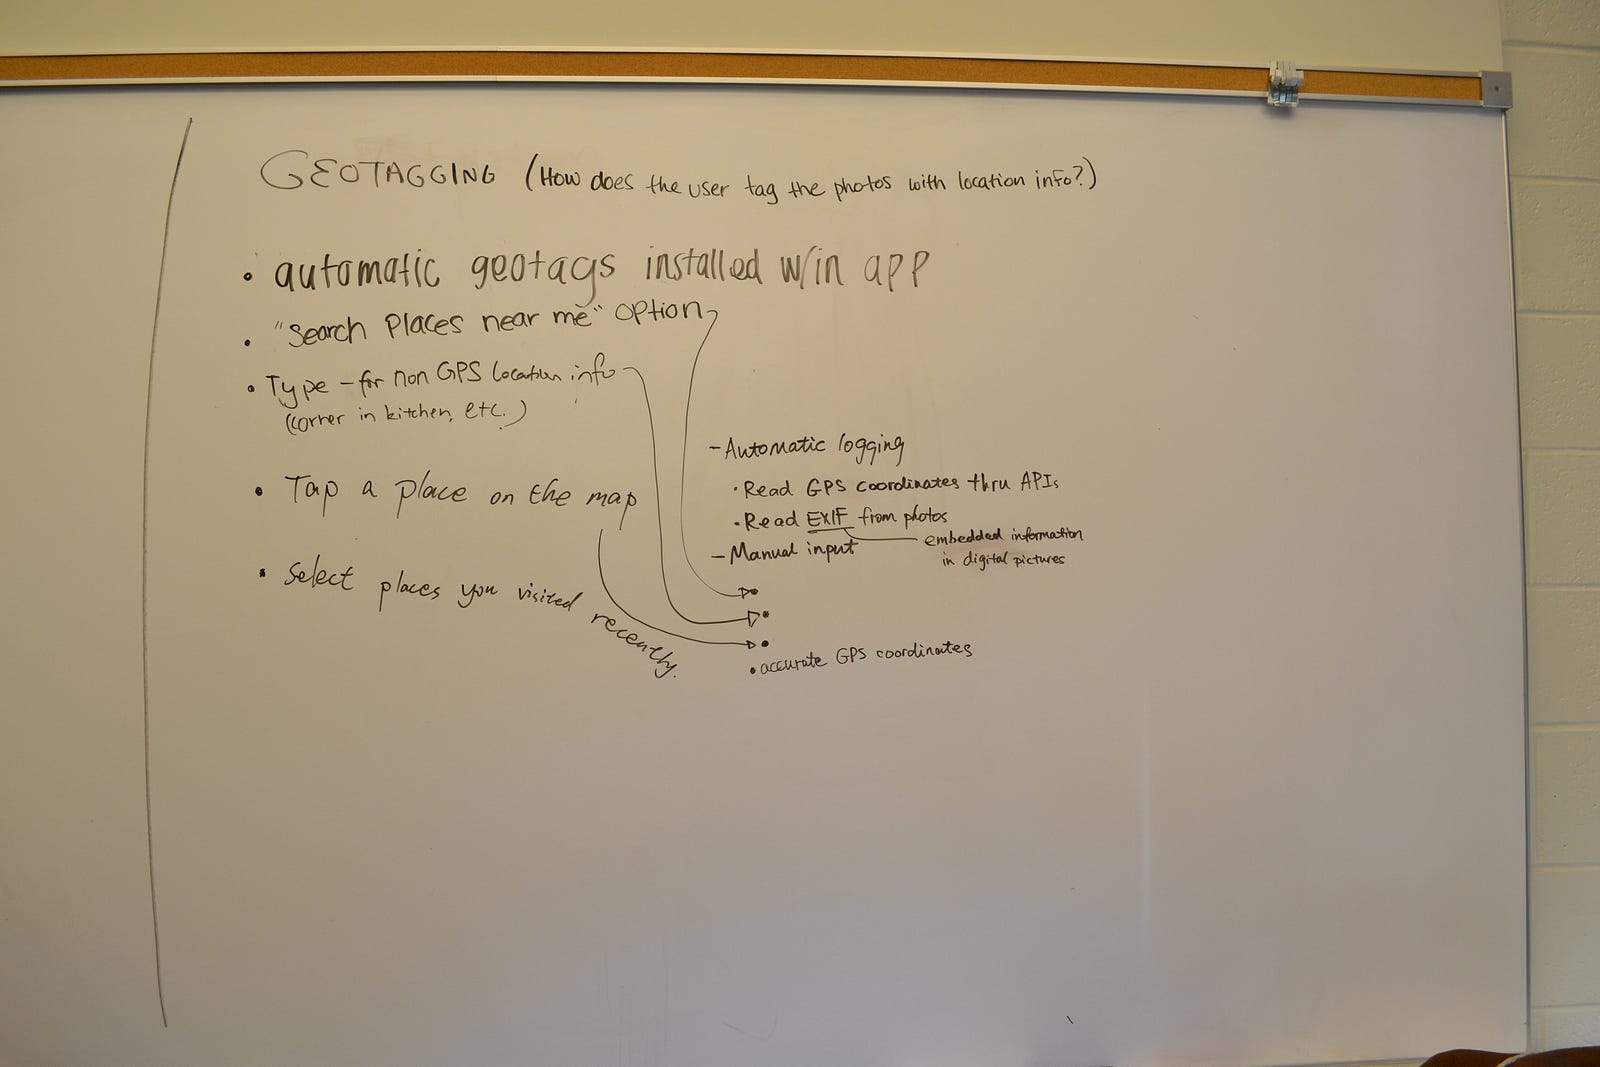 GEOTAGGING (How does the user tag the photos with location info?)
• automatic geotags installed w/in app
• "Search Places near me" option
• Type - for non GPS location info
(corner in kitchen, etc.)
• Tap a place on the map
• Select places you visited recently.
- Automatic logging
• Read GPS coordinates thru APIs
• Read EXIF from photos
embedded information
in digital pictures
- Manual input
• accurate GPS coordinates